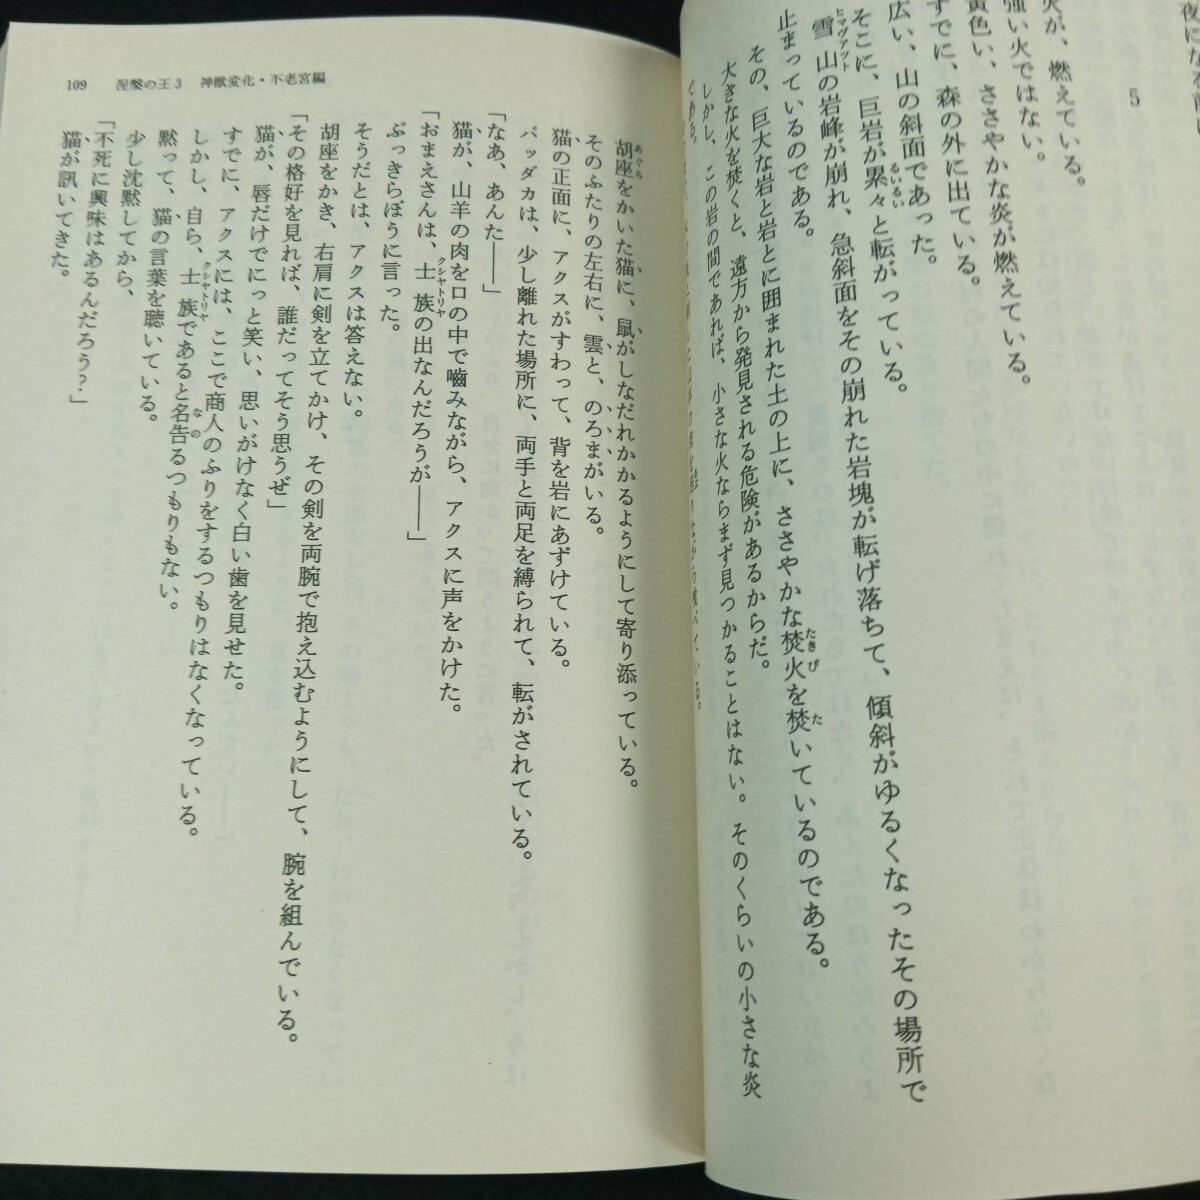 夜になる前に
5
火が、燃えている。
強い火ではない。
黄色い、ささやかな炎が燃えている。
すでに、森の外に出ている。
広い、山の斜面であった。
そこに、巨岩が累々と転がっている。
るいるい
雪山の岩峰が崩れ、急斜面をその崩れた岩塊が転げ落ちて、傾斜がゆるくなったその場所で
ヒマヴァット
止まっているのである。
その、巨大な岩と岩とに囲まれた土の上に、ささやかな焚火を焚いているのである。
たきび
た
大きな火を焚くと、遠方から発見される危険があるからだ。
しかし、この岩の間であれば、小さな火ならまず見つかることはない。そのくらいの小さな炎
である。
109 涅槃の王3 神獣変化・不老宮編
胡座をかいた猫に、鼠がしなだれかかるようにして寄り添っている。
あぐら
そのふたりの左右に、雲と、のろまがいる。
猫の正面に、アクスがすわって、背を岩にあずけている。
バッダカは、少し離れた場所に、両手と両足を縛られて、転がされている。
「なあ、あんた――」
猫が、山羊の肉を口の中で嚙みながら、アクスに声をかけた。
「おまえさんは、士族の出なんだろうが――」
クシャトリヤ
ぶっきらぼうに言った。
そうだとは、アクスは答えない。
胡座をかき、右肩に剣を立てかけ、その剣を両腕で抱え込むようにして、腕を組んでいる。
「その格好を見れば、誰だってそう思うぜ」
猫が、唇だけでにっと笑い、思いがけなく白い歯を見せた。
すでに、アクスには、ここで商人のふりをするつもりはなくなっている。
しかし、自ら、士族であると名告るつもりもない。
クシャトリヤ
なの
黙って、猫の言葉を聴いている。
少し沈黙してから、
「不死に興味はあるんだろう?」
猫が訊いてきた。